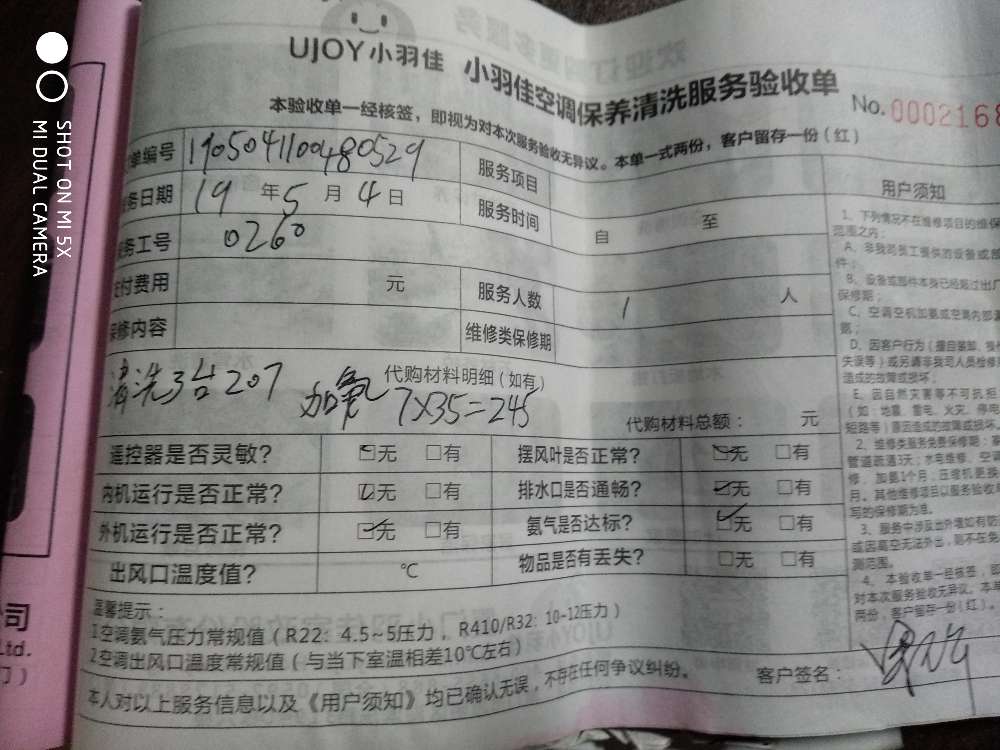 UJOY小羽佳 小羽佳空调保养清洗服务验收单
No.0002168
本验收单一经核签，即视为对本次服务验收无异议。本单一式两份，客户留存一份（红）
单编号 1905041100480529 服务项目
务日期 19 年 5 月 4 日 服务时间 自 至
务工号 0260
付费用 元 服务人数 1 人
保修内容 维修类保修期
清洗3台207 加氟 代购材料明细（如有）
7X35=245
代购材料总额： 元
遥控器是否灵敏? ☑无 □有 摆风叶是否正常? ☑无 □有
内机运行是否正常? ☑无 □有 排水口是否通畅? ☑无 □有
外机运行是否正常? ☑无 □有 氨气是否达标? ☑无 □有
出风口温度值? ℃ 物品是否有丢失? □无 □有
温馨提示：
1.空调氨气压力常规值（R22: 4.5~5压力，R410/R32: 10-12压力）
2.空调出风口温度常规值（与当下室温相差10℃左右）
本人对以上服务信息以及《用户须知》均已确认无误，不存在任何争议纠纷。
客户签名：
用户须知
1、下列情况不在维修项目的维保
范围之内：
A、非我司员工提供的设备或部
件；
B、设备或部件本身已经超过出厂
保修期；
C、空调空机加氨或空调内部
D、因客户行为（擅自装卸、
失误等）或另请非我司人员检修
造成的故障或损坏；
E、因自然灾害等不可抗拒
（如：地震、雷电、火灾、停电
短路等）意因造成的故障或损坏。
2、维修类服务免费保修期：
管道疏通3天；水电维修、空调
修、加氨1个月，压缩机更换
月。其他维修项目以服务验收单
写的保修期为准。
3、服务中涉及出外墙如有防
或因高空无法外出，则不在
测范围。
4、本验收单一经核签，即
对本次服务验收无异议。本单
两份，客户留存一份（红）。
SHOT ON MI 5X
MI DUAL CAMERA
公司
Ltd.
门）